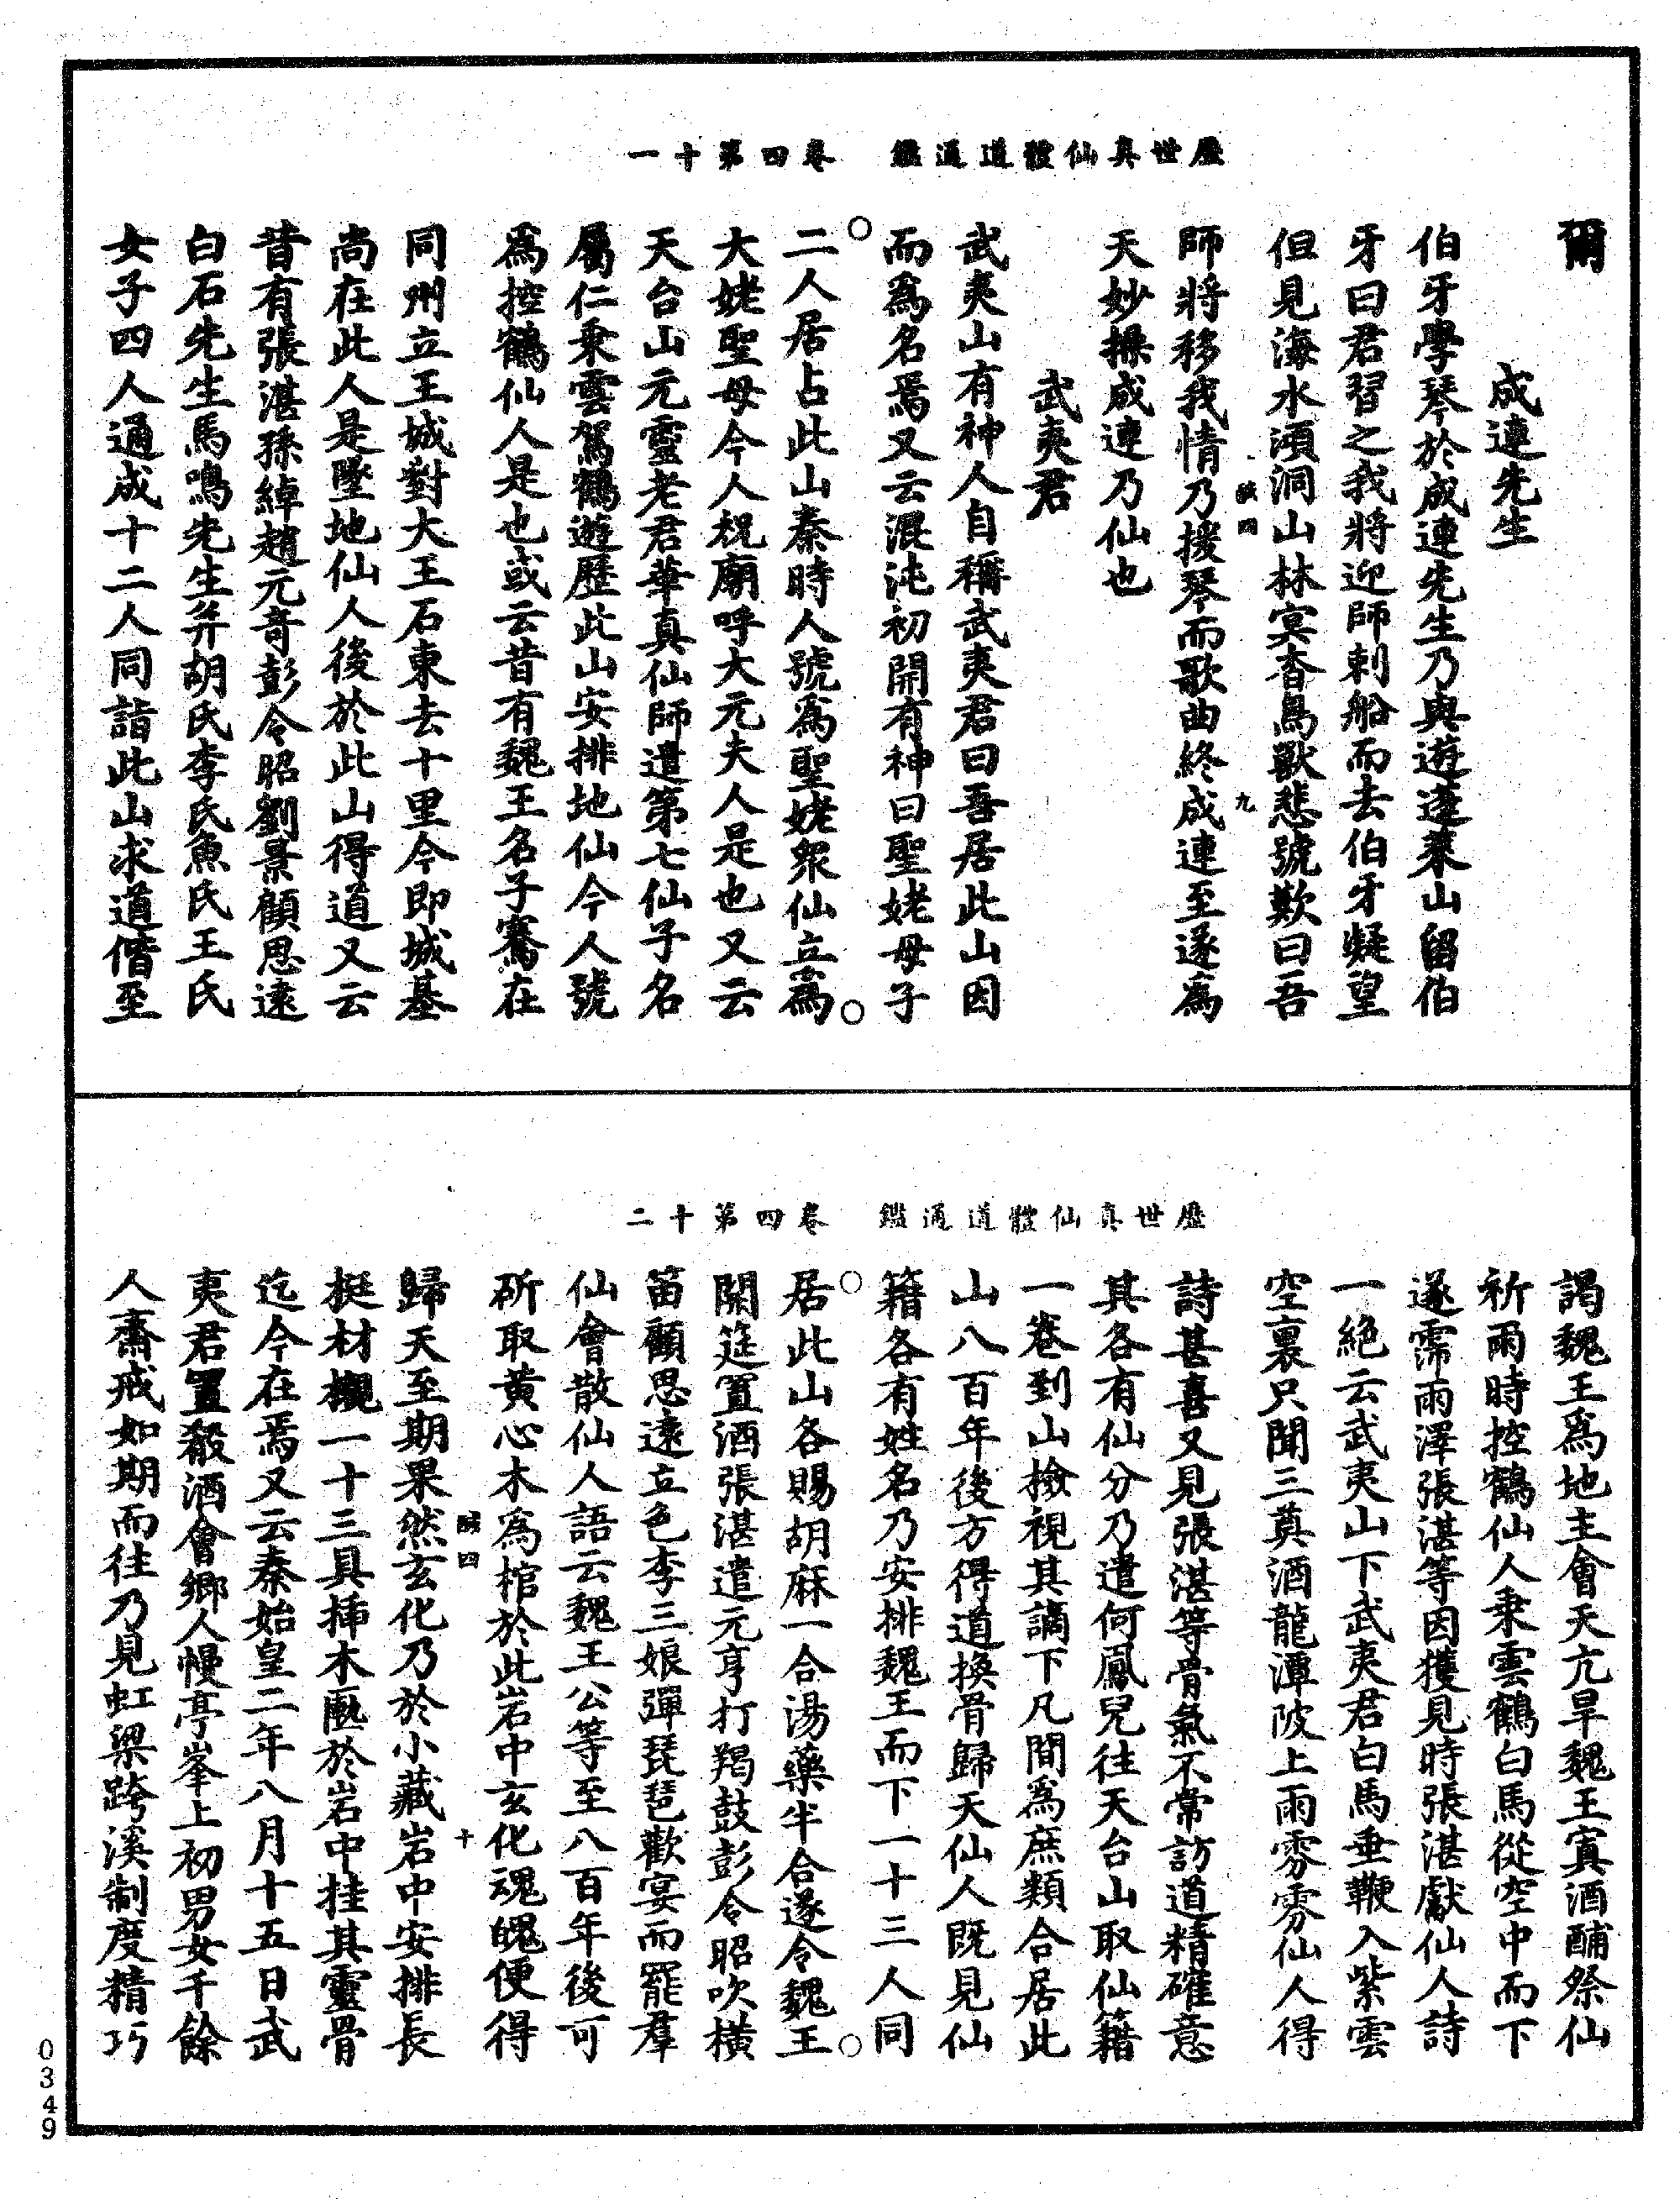 歷世真仙體道通鑑　卷四第十一
爾
成連先生
伯牙學琴於成連先生乃與遊蓬萊山留伯
牙曰君習之我將迎師刺船而去伯牙凝望
但見海水澒洞山林冥杳鳥獸悲號歎曰吾
四　九
師將移我情乃援琴而歌曲終成連至遂為
天妙操成連乃仙也
武夷君
武夷山有神人自稱武夷君曰吾居此山因
而為名焉又云混沌初開有神曰聖姥母子
二人居占此山秦時人號為聖姥衆仙立為
大姥聖母今人祝廟呼大元夫人是也又云
天台山元靈老君華真仙師遣第七仙子名
屬仁乗雲駕鶴遊歷此山安排地仙今人號
為控鶴仙人是也或云昔有魏王名子騫在
同州立王城對大王石東去十里今即城基
尚在此人是墜地仙人後於此山得道又云
昔有張湛孫綽趙元竒彭令昭劉景顧思遠
白石先生馬鳴先生并胡氏李氏魚氏王氏
女子四人通成十二人同詣此山求道偕至
歷世真仙體道通鑑　卷四第十二
謁魏王為地主會天亢旱魏王寘酒酺祭仙
祈雨時控鶴仙人乗雲鶴白馬從空中而下
遂霈雨澤張湛等因獲見時張湛獻仙人詩
一絶云武夷山下武夷君白馬垂鞭入紫雲
空裏只聞三奠酒龍潭陂上雨雰雰仙人得
詩甚喜又見張湛等骨氣不常訪道精確意
其各有仙分乃遣何鳳兒往天台山取仙籍
一卷到山撿視其謫下凡間為庶類合居此
山八百年後方得道換骨歸天仙人既見仙
籍各有姓名乃安排魏王而下一十三人同
居此山各賜胡麻一合湯藥半合遂令魏王
開筵置酒張湛遣元亨打羯鼓彭令昭吹横
笛顧思遠立色李三娘彈琵琶歡宴而罷羣
仙會散仙人語云魏王公等至八百年後可
斫取黄心木為棺於此岩中玄化魂魄便得
四　十
歸天至期果然玄化乃於小藏岩中安排長
挺材櫬一十三具揷木匭於岩中挂其靈骨
迄今在焉又云秦始皇二年八月十五日武
夷君置殽酒會鄉人幔亭峯上初男女千餘
人齋戒如期而往乃見虹梁跨溪制度精巧
0349